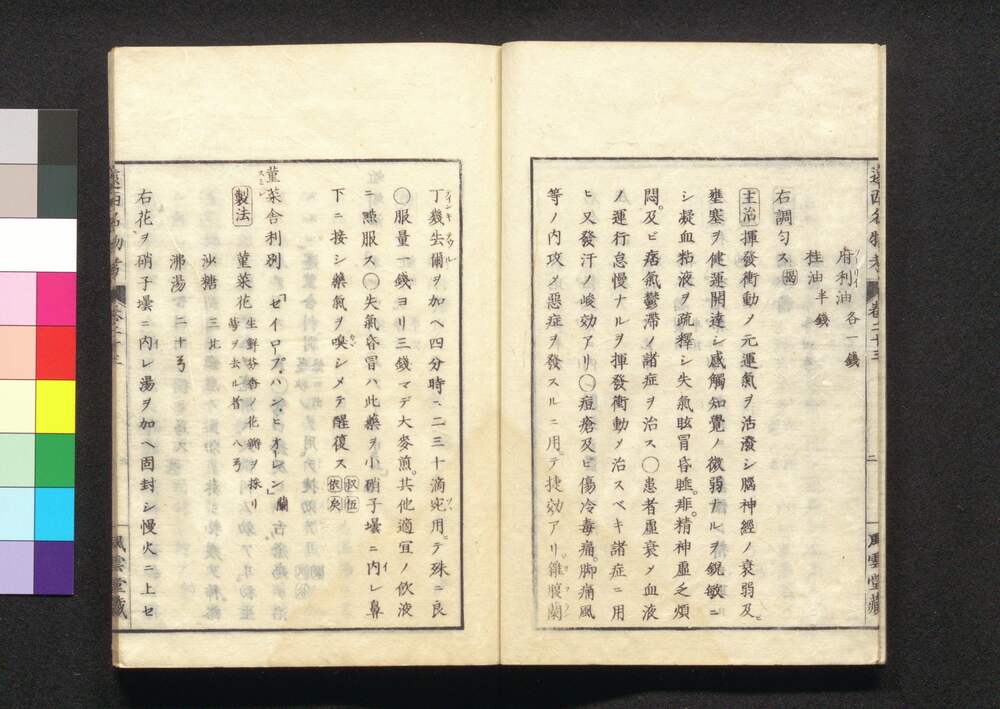 府利油各一錢
桂油半錢
右調勻ス
主治揮發衝動ノ元運氣ヲ活潑シ腦神經ノ衰弱及ビ
壅塞ヲ健運開達シ感觸知覺ノ微弱ナルヲ銳敏ニ
シ凝血粘液ヲ疏釋シ失氣眩冒昏睡。痱精神虛乏煩
悶。及ビ痞氣鬱滯ノ諸症ヲ治ス〇患者虛衰メ血液
ノ運行怠慢ナルヲ揮發衝動メ治スベキ諸症ニ用
ヒ又發汗ノ峻効アリ〇痘瘡及ビ傷冷毒痛。脚痛風
等ノ内攻メ惡症ヲ發スルニ用テ捷効アリ。
丁幾去爾ヲ加ヘ四分時ニ二三十滴
用。テ殊ニ良
〇服量一錢ヨリ三錢マデ大麥煎。其他適宜ノ飲液
ニ㸃服ス〇失氣昏冒ハ此藥ヲ小硝子壜ニ内レ鼻
下ニ接シ藥氣ヲ嗅シメテ醒復ス
菫菜舎利別「セイロープ、ハン、ヒオーレン」蘭
スミレ
製法 菫菜花 生鮮芬香ノ花瓣ヲ採リ
萼ヲ去ル者 八弓
沙糖 三比
沸湯 二十弓
右花ヲ硝子壜ニ内レ湯ヲ加ヘ固封シ慢火ニ上セ
遠西名物考 卷二十三
二
風雲堂藏